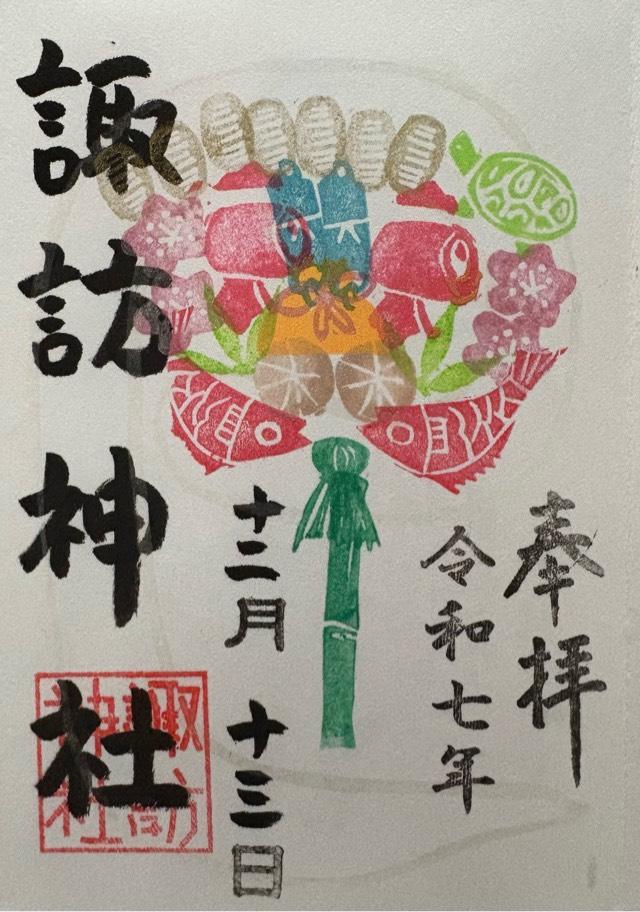 奉拝
令和七年
十二月 十三日
諏訪神社
諏訪神社